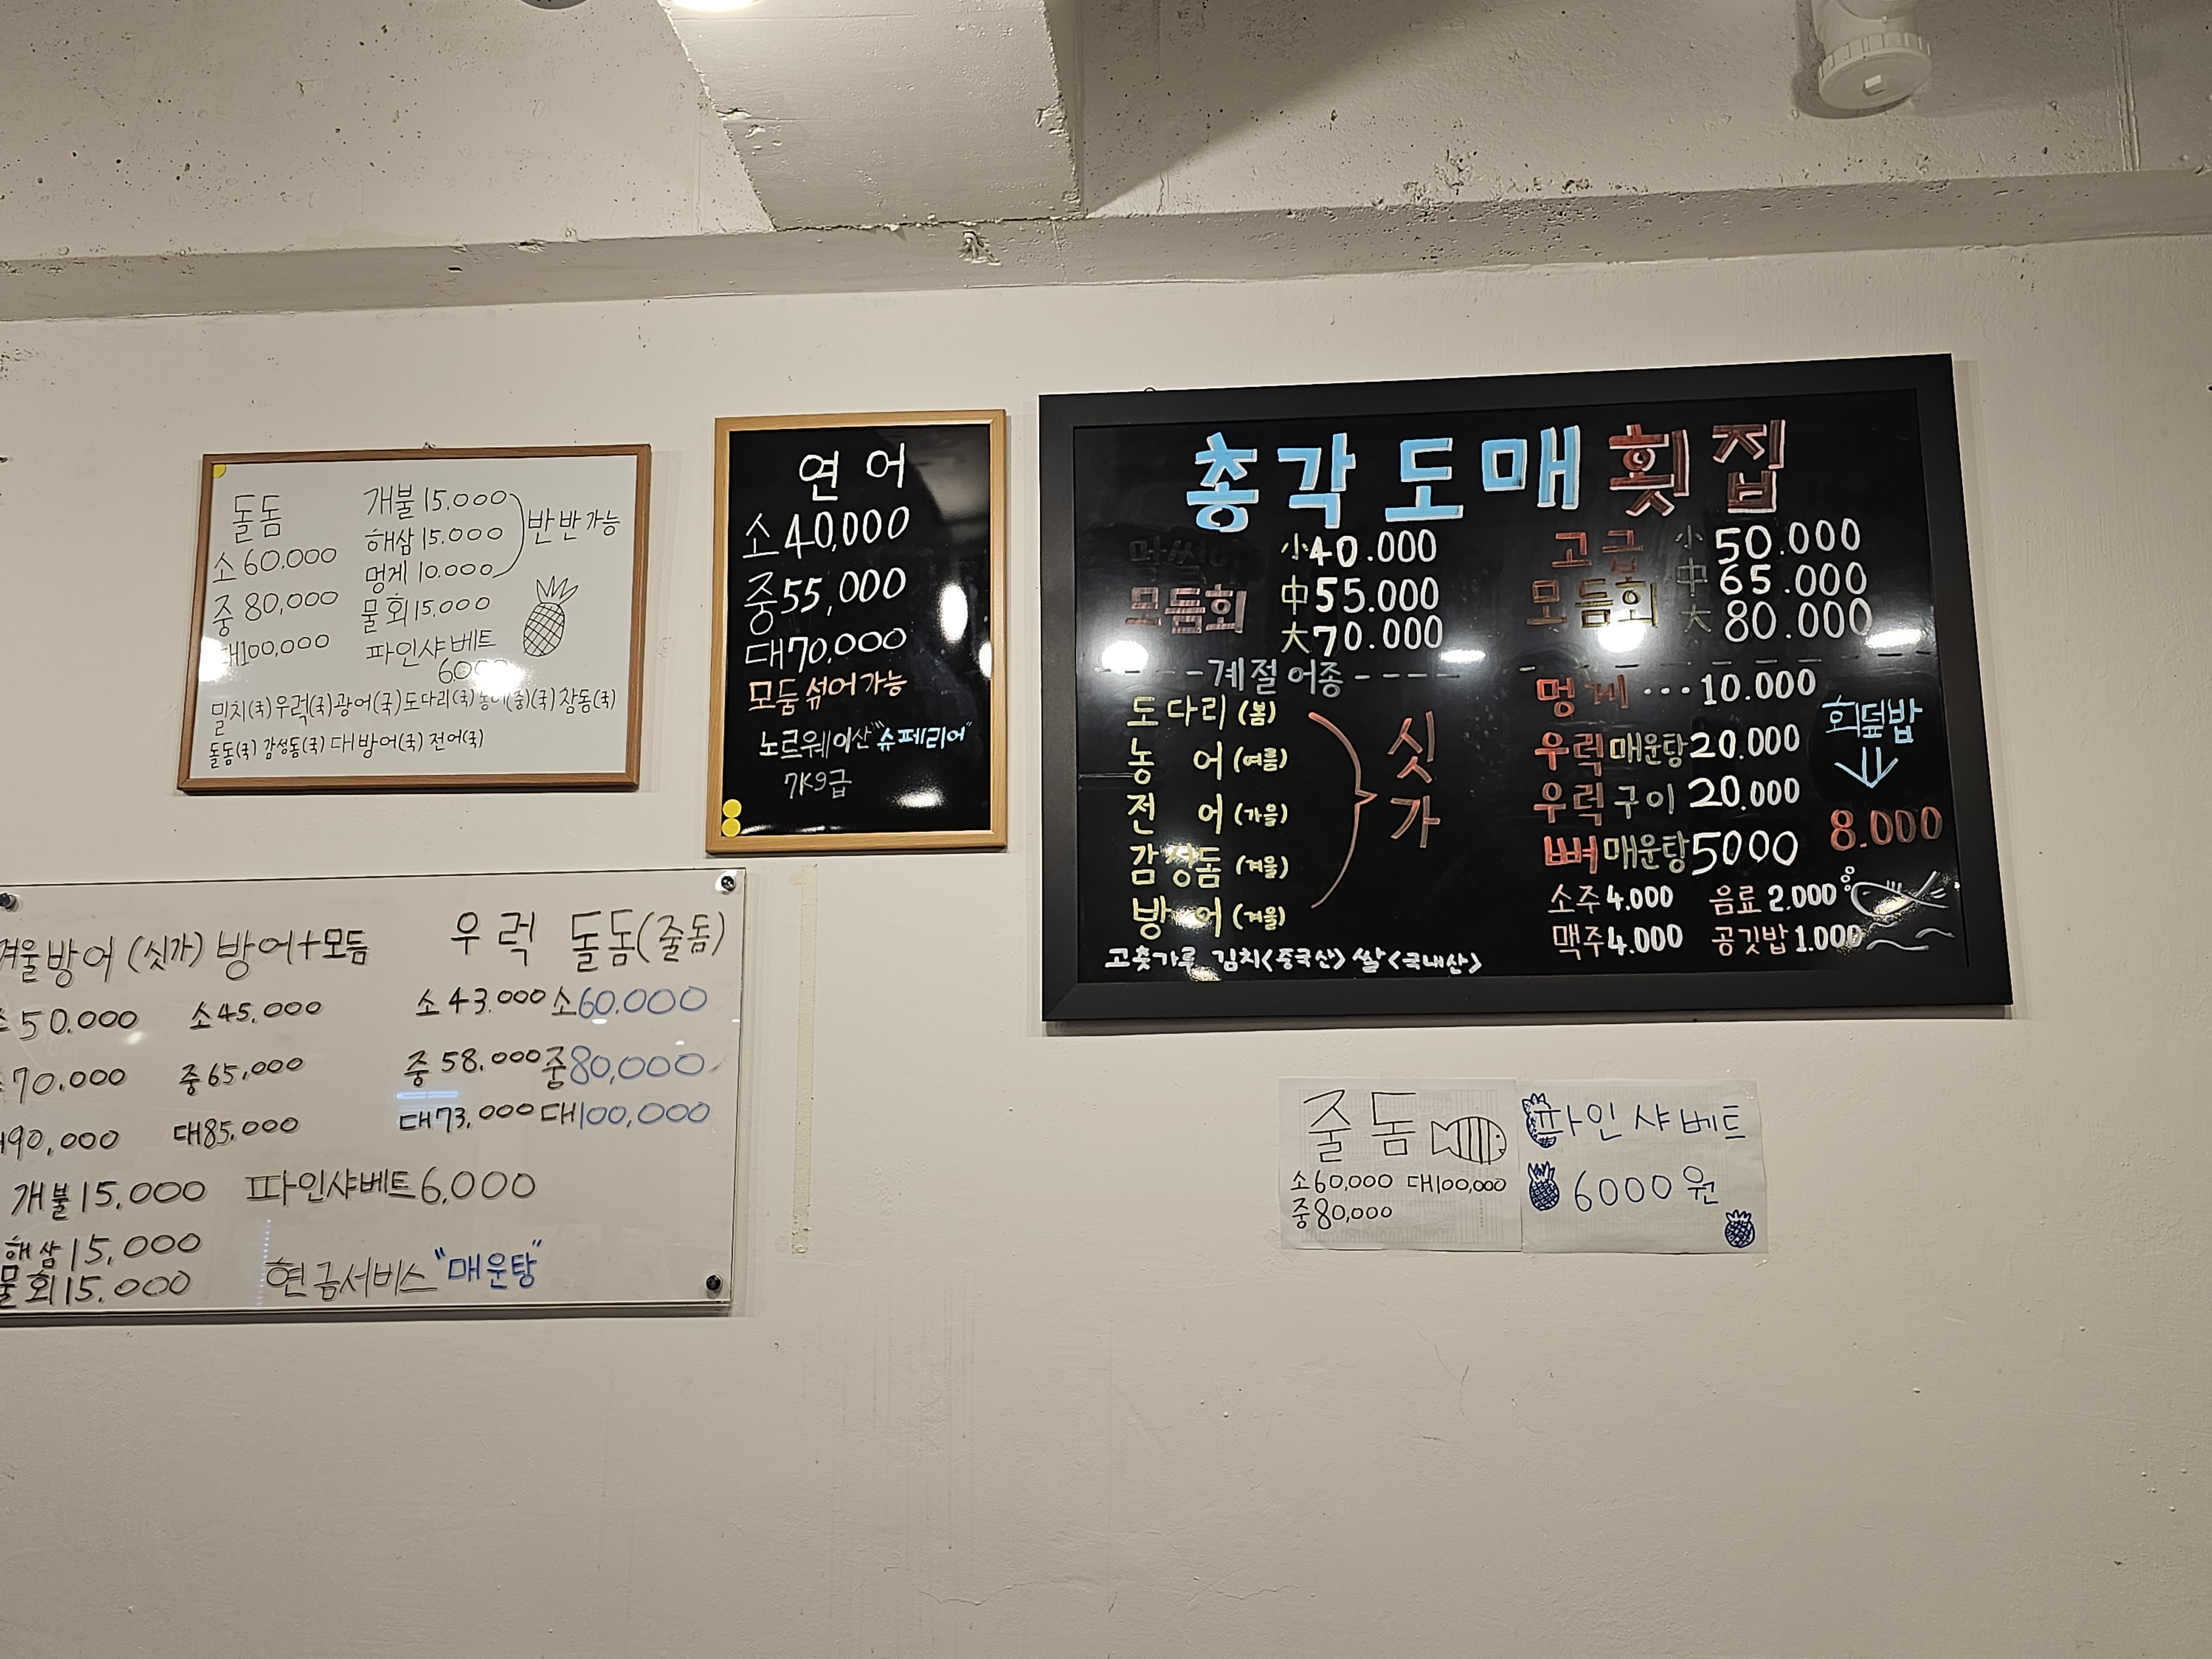 돌돔
소 60.000
중 80,000
대100,000
개불 15.000
해삼 15.000
멍게 10.000
반반가능
물회 15.000
파인샤베트
6.000
밀치(국) 우럭(국) 광어(국) 도다리(국) 농어(중)(국) 참돔(국)
돌돔(국) 감성돔(국) 대방어(국) 전어(국)
연어
소 40,000
중 55,000
대 70,000
모둠 섞어 가능
노르웨이산 "슈페리어"
7Kg급
총각도매횟집
모듬회
小 40.000
中 55.000
大 70.000
고급
모듬회
小 50.000
中 65.000
大 80.000
----계절어종----
도다리 (봄)
농 어 (여름)
전 어 (가을)
감성돔 (겨울)
방 어 (겨울)
싯가
멍게 ... 10.000
우럭매운탕 20.000
우럭구이 20.000
뼈매운탕 5000
회덮밥
8.000
소주 4.000 음료 2.000
맥주 4.000 공깃밥 1.000
고춧가루 김치<중국산> 쌀<국내산>
겨울방어 (싯가) 방어+모듬 우럭 돌돔(줄돔)
소 50.000 소 45.000 소 43.000 소 60.000
70.000 중 65,000 중 58.000 중 80,000
90,000 대 85,000 대 73,000 대 100,000
개불 15,000 파인샤베트 6,000
해삼 15,000
물회 15.000 현금서비스 "매운탕"
줄돔
소 60,000 대 100,000
중 80,000
파인샤베트
6000원